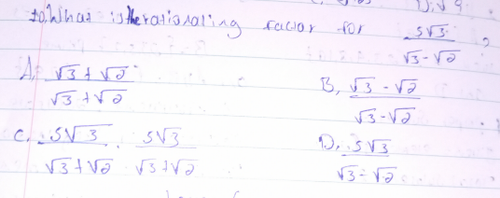 10. What is the rationaling factor for 5√3 / √3 - √2 ?
A. √3 + √2 / √3 + √2
B. √3 - √2 / √3 - √2
C. 5√3 / √3 + √2 . 5√3 / √3 + √2
D. 5√3 / √3 - √2